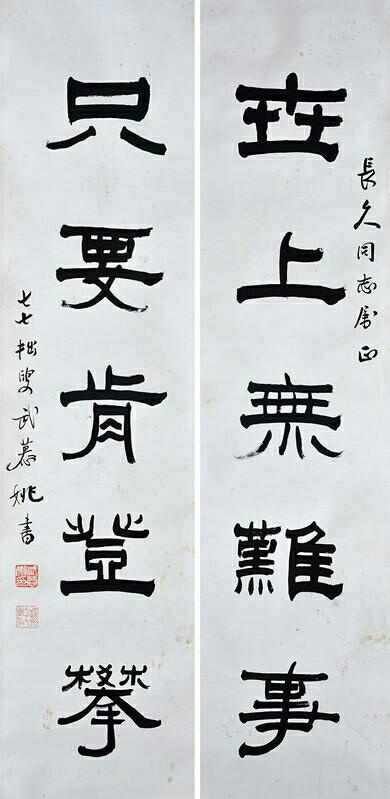 長久同志属正
世上無難事
只要肯登攀
七七拙叟武慕姚書